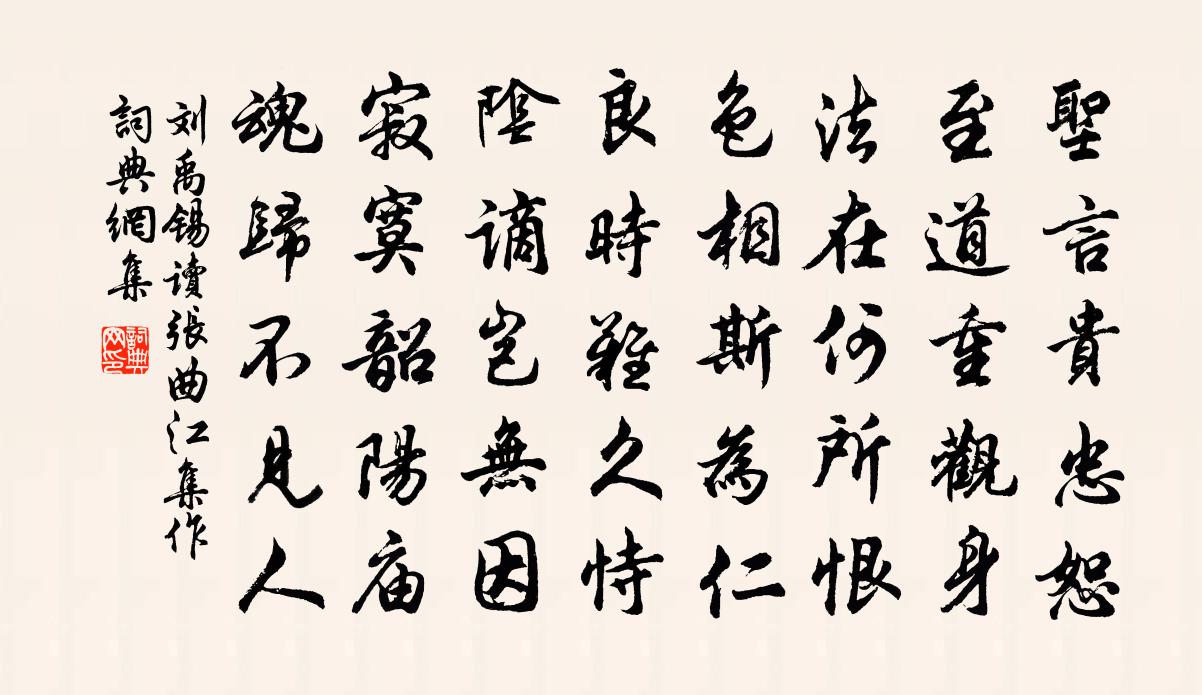 聖言貴忠恕
至道重觀身
法在何所恨
色相斯為仁
良時難久恃
陰謫豈無因
寂寞韶陽廟
魂歸不見人
刘禹锡讀張曲江集作
詞典網集
詞典网印